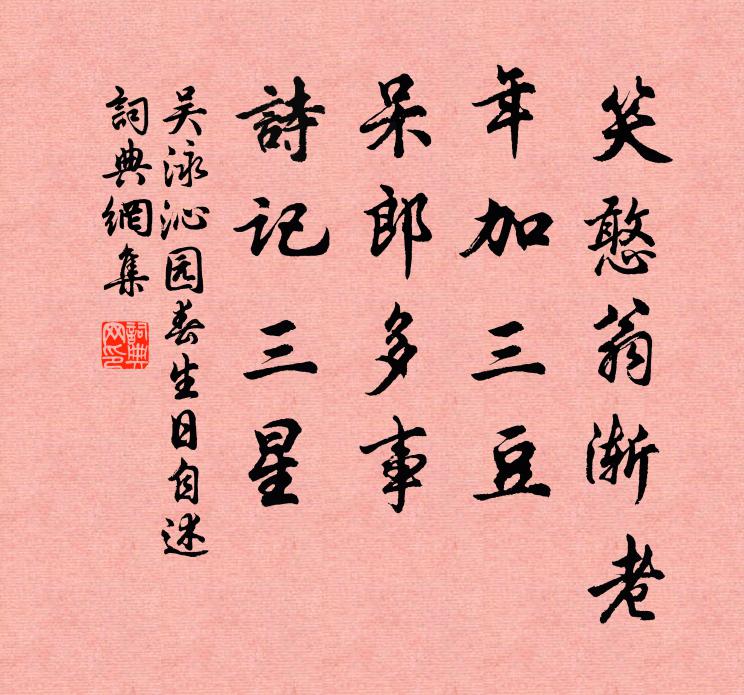 笑憨翁渐老
年加三豆
呆郎多事
詩记三星
吴泳沁园春生日自述
詞典網集
詞典网印